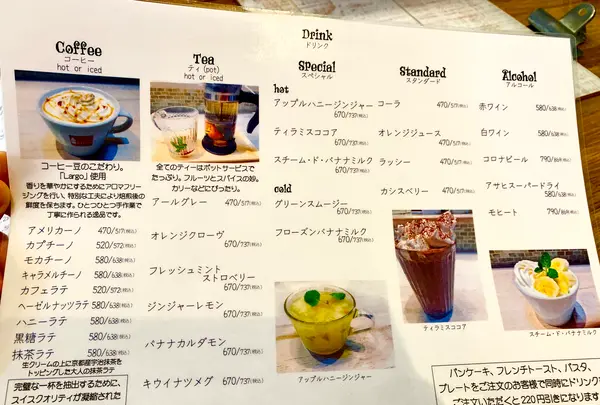 Drink
ドリンク
Coffee
コーヒー
hot or iced
コーヒー豆のこだわり。
「Largo」使用
香りを華やかにするためにアロマフリー
ジングを行い、特別な工夫により焙煎後の
鮮度を保ちます。ひとつひとつ手作業で
丁寧に作られる逸品です。
アメリカーノ 470/517(税込)
カプチーノ 520/572(税込)
モカチーノ 580/638(税込)
キャラメルチーノ 580/638(税込)
カフェラテ 520/572(税込)
ヘーゼルナッツラテ 580/638(税込)
ハニーラテ 580/638(税込)
黒糖ラテ 580/638(税込)
抹茶ラテ 580/638(税込)
生クリームの上に京都産宇治抹茶を
トッピングした大人の抹茶ラテ
完璧な一杯を抽出するために、
スイスクオリティが凝縮された
Tea
ティ(pot)
hot or iced
全てのティーはポットサービスで
たっぷり。フルーツとスパイスの妙。
カリーなどにぴったり。
アールグレー 670/737(税込)
オレンジクローヴ
670/737(税込)
フレッシュミント
ストロベリー
670/737(税込)
ジンジャーレモン
670/737(税込)
バナナカルダモン
670/737(税込)
キウイナツメグ
670/737(税込)
Special
スペシャル
hot
アップルハニージンジャー
670/737(税込)
ティラミスココア
670/737(税込)
スチーム・ド・バナナミルク
670/737(税込)
cold
グリーンスムージー
670/737(税込)
フローズンバナナミルク
670/737(税込)
アップルハニージンジャー
Standard
スタンダード
コーラ 470/517(税込)
オレンジジュース
470/517(税込)
ラッシー 470/517(税込)
カシスベリー 470/517(税込)
ティラミスココア
Alcohol
アルコール
赤ワイン 580/638(税込)
白ワイン 580/638(税込)
コロナビール 790/869(税込)
アサヒスーパードライ
580/638(税込)
モヒート 790/869(税込)
スチーム・ド・バナナミルク
パンケーキ、フレンチトースト、パスタ、
プレートをご注文のお客様で同時にドリンク
ご注文いただくと220円引きになります